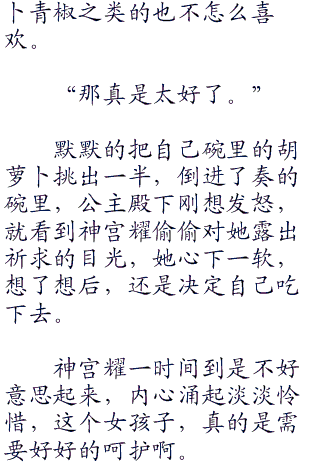 卜青椒之类的也不怎么喜
欢。
“那真是太好了。”
默默的把自己碗里的胡
萝卜挑出一半，倒进了奏的
碗里，公主殿下刚想发怒，
就看到神宫耀偷偷对她露出
祈求的目光，她心下一软，
想了想后，还是决定自己吃
下去。
神宫耀一时间到是不好
意思起来，内心涌起淡淡怜
惜，这个女孩子，真的是需
要好好的呵护啊。